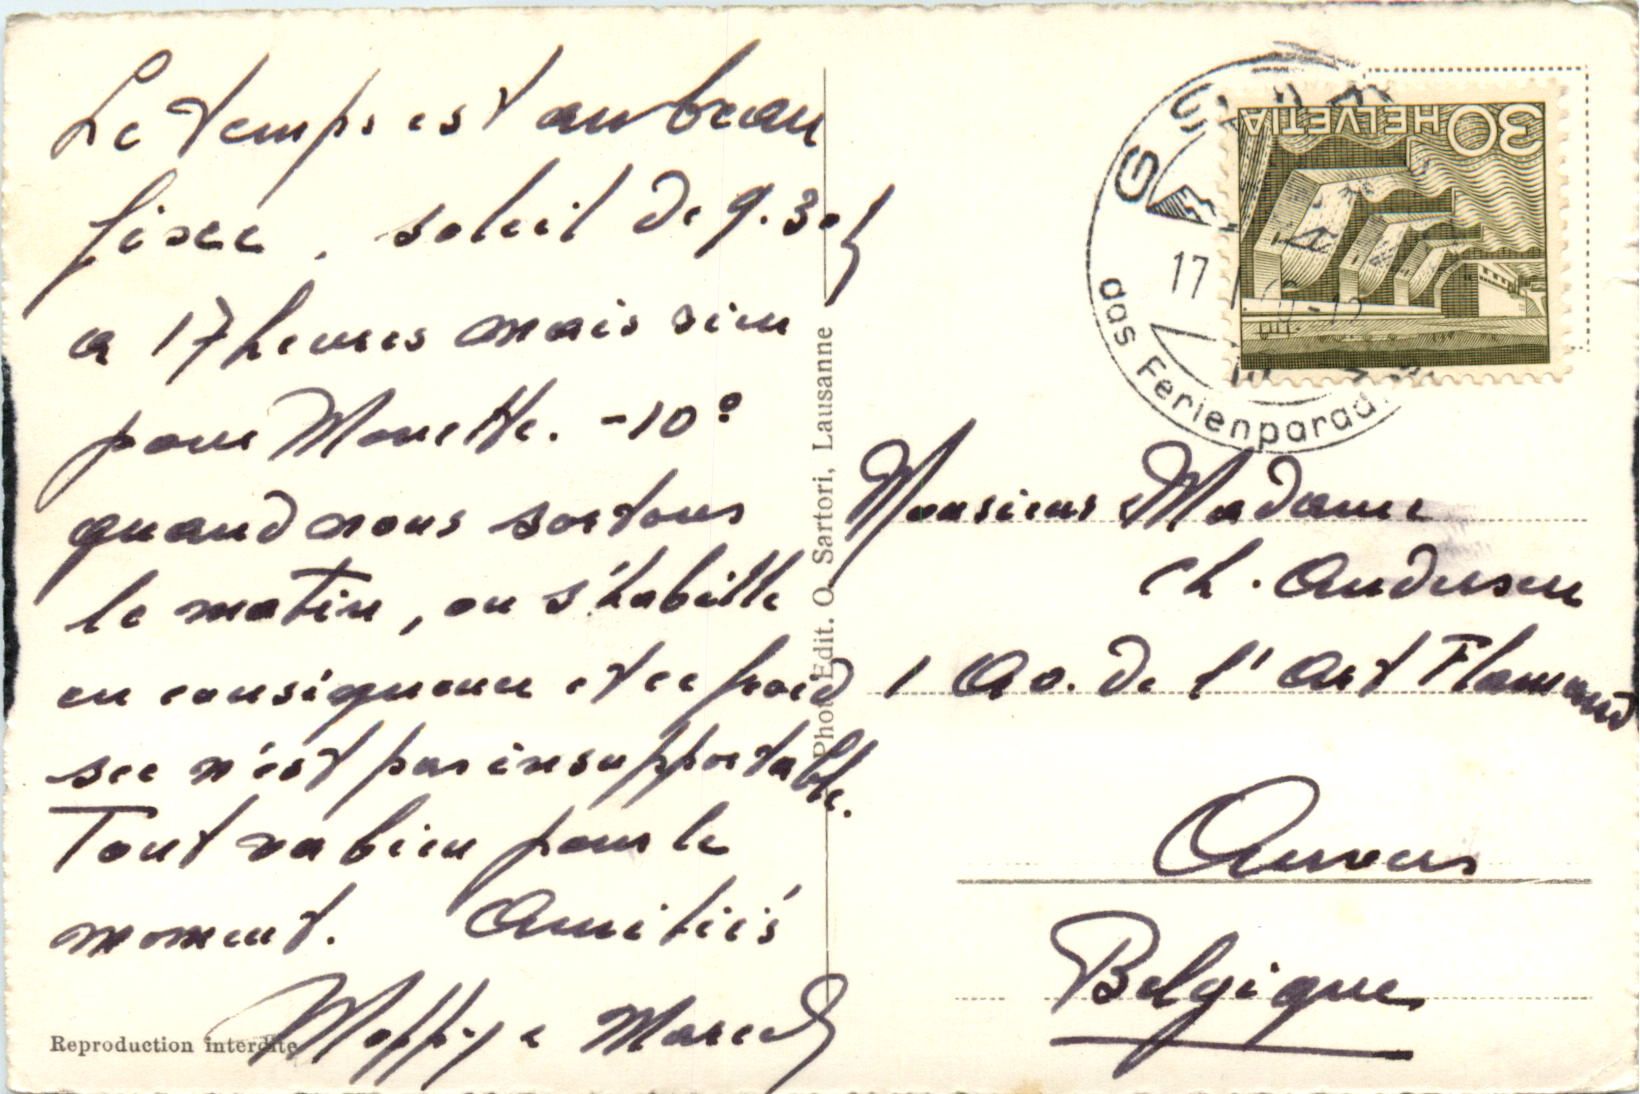 Le temps est au beau
fixe, soleil de 9.30h
a 17 heures mais rien
pour Monette. -10°
quand nous sortons
le matin, on s'habille
en consiqueur et ce froid
sec n'est pas insupportable.
Tout va bien pour le
moment. Amitiés
Marcel
Reproduction interdite
Photo Edit. O. Sartori, Lausanne
GST
17
das Ferienparad
30 HELVETIA
Monsieur Madame
Ch. Andersen
1 Av. de l'Art Flamand
Anvers
Belgique